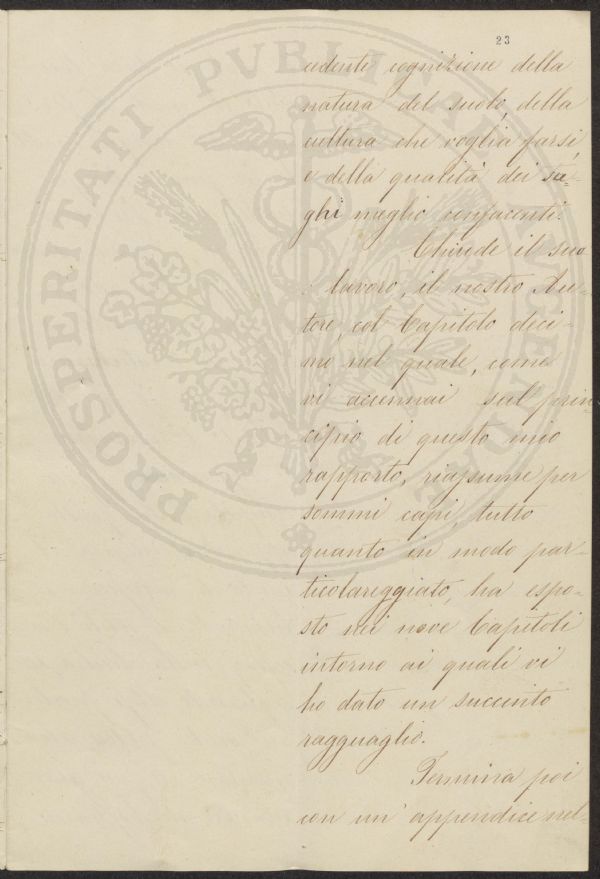 23
PROSPERITATI PVBLICAE AVGENDAE
cedente cognizione della
natura del suolo, della
cultura che voglia farsi,
e della qualità dei su-
ghi meglio confacenti.
Chiude il suo
lavoro, il nostro Au-
tore, col Capitolo deci-
mo nel quale, come
vi accennai sul prin-
cipio di questo mio
rapporto, riassume per
sommi capi, tutto
quanto in modo par-
ticolareggiato, ha espo-
sto nei nove Capitoli
intorno ai quali vi
ho dato un succinto
ragguaglio.
Termina poi
con un' appendice nel-